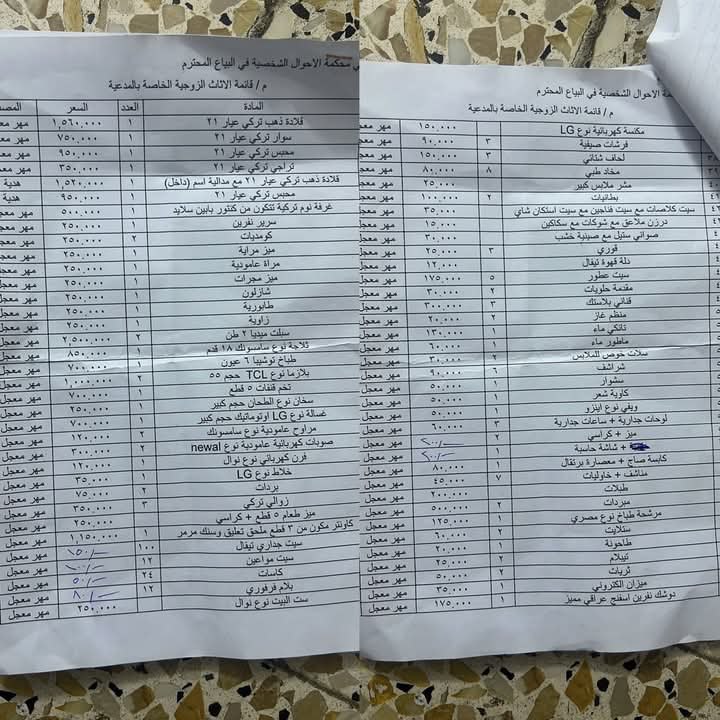 محكمة الاحوال الشخصية في البياع المحترم
م / قائمة الاثاث الزوجية الخاصة بالمدعية
المادة العدد السعر المصد
قلادة ذهب تركي عيار ٢١ ١ ١,٥٦٠,٠٠٠ مهر معجل
سوار تركي عيار ٢١ ١ ٧٥٠,٠٠٠ مهر معجل
محبس تركي عيار ٢١ ١ ٩٥٠,٠٠٠ مهر معجل
تراجي تركي عيار ٢١ ١ ٣٥٠,٠٠٠ مهر معجل
قلادة ذهب تركي عيار ٢١ مع مدالية اسم (داخل) ١ ١,٥٢٠,٠٠٠ هدية
محبس تركي عيار ٢١ ١ ٩٥٠,٠٠٠ هدية
غرفة نوم تركية تتكون من كنتور بابين سلايد ١ ٥٠٠,٠٠٠ مهر معجل
سرير نفرين ١ ٢٥٠,٠٠٠ مهر معجل
كومديات ٢ ٢٥٠,٠٠٠ مهر معجل
ميز مراية ١ ٢٥٠,٠٠٠ مهر معجل
مراة عامودية ١ ٢٥٠,٠٠٠ مهر معجل
ميز مجرات ١ ٢٥٠,٠٠٠ مهر معجل
شازلون ١ ٢٥٠,٠٠٠ مهر معجل
طابورية ١ ٢٥٠,٠٠٠ مهر معجل
زاوية ١ ٢٥٠,٠٠٠ مهر معجل
سبلت ميديا ٢ طن ٢ ٢,٥٠٠,٠٠٠ مهر معجل
ثلاجة نوع سامسونك ١٨ قدم ١ ٨٥٠,٠٠٠ مهر معجل
طباخ توشيبا ٦ عيون ١ ٧٠٠,٠٠٠ مهر معجل
بلازما نوع TCL حجم ٥٥ ٢ ١,٠٠٠,٠٠٠ مهر معجل
تخم قنفات ٥ قطع ١ ٧٠٠,٠٠٠ مهر معجل
سخان نوع الطحان حجم كبير ١ ٢٥٠,٠٠٠ مهر معجل
غسالة نوع LG اوتوماتيك حجم كبير ١ ٧٠٠,٠٠٠ مهر معجل
مراوح عامودية نوع سامسونك ٢ ١٢٠,٠٠٠ مهر معجل
صوبات كهربائية عامودية نوع newal ٢ ٣٠٠,٠٠٠ مهر معجل
فرن كهربائي نوع نوال ١ ١٢٠,٠٠٠ مهر معجل
خلاط نوع LG ١ ٣٥,٠٠٠ مهر معجل
بردات ٢ ٧٥,٠٠٠ مهر معجل
زوالي تركي ٣ ٣٥٠,٠٠٠ مهر معجل
ميز طعام ٥ قطع + كراسي ٢٥٠,٠٠٠ مهر معجل
كاونتر مكون من ٣ قطع ملحق تعليق وسنك مرمر ١ ١,١٥٠,٠٠٠ مهر معجل
سيت جداري تيفال ١٠٠ ١٥٠/- مهر معجل
سيت مواعين ١٢ ١٠٠/- مهر معجل
كاسات ٢٤ ٥٠/- مهر معجل
بلام فرفوري ١٢ ٨٠/- مهر معجل
ست البيت نوع نوال ٢٥٠,٠٠٠ مهر معجل
محكمة الاحوال الشخصية في البياع المحترم
م / قائمة الاثاث الزوجية الخاصة بالمدعية
مكنسة كهربائية نوع LG ١٥٠,٠٠٠ مهر معجل
فرشات صيفية ٣ ٩٠,٠٠٠ مهر معجل
لحاف شتائي ٣ ١٥٠,٠٠٠ مهر معجل
مخاد طبي ٨ ٨٠,٠٠٠ مهر معجل
منشر ملابس كبير ٢٥,٠٠٠ مهر معجل
بطانيات ٢ ١٠٠,٠٠٠ مهر معجل
سيت كلاصات مع سيت فناجين مع سيت استكان شاي ٣٥,٠٠٠ مهر معجل
درزن ملاعق مع شوكات مع سكاكين ١٥,٠٠٠ مهر معجل
صواني ستيل مع صينية خشب ٣٠,٠٠٠ مهر معجل
قوري ٣ ٢٥,٠٠٠ مهر معجل
دلة قهوة تيفال ١٢,٠٠٠ مهر معجل
سيت عطور ٥ ١٧٥,٠٠٠ مهر معجل
مقدمة حلويات ٢ ٣٠,٠٠٠ مهر معجل
قناني بلاستك ٣ ٣٠٠,٠٠٠ مهر معجل
منظم غاز ٢ ٢٠,٠٠٠ مهر معجل
تانكي ماء ١ ١٣٠,٠٠٠ مهر معجل
ماطور ماء ١ ٦٠,٠٠٠ مهر معجل
سلات خوص للملابس ٢ ٣٠,٠٠٠ مهر معجل
شراشف ٦ ٩٠,٠٠٠ مهر معجل
سشوار ١ ٥٠,٠٠٠ مهر معجل
كاوية شعر ١ ٥٠,٠٠٠ مهر معجل
ويفي نوع اينزو ١ ٥٠,٠٠٠ مهر معجل
لوحات جدارية + ساعات جدارية ٣ ٦٠,٠٠٠ مهر معجل
ميز + كراسي ٢ ٢٠٠/- مهر معجل
+ شاشة حاسبة ١ ٢٠٠/- مهر معجل
كابسة صاج + معصارة برتقال ١ ٨٠,٠٠٠ مهر معجل
مناشف + خاوليات ٧ ٤٥,٠٠٠ مهر معجل
طبلات ٢٠٠,٠٠٠ مهر معجل
مبردات ٢ ٥٠٠,٠٠٠ مهر معجل
مرشحة طباخ نوع مصري ١ ١٢٥,٠٠٠ مهر معجل
ستلايت ٢ ٦٠,٠٠٠ مهر معجل
طاحونة ١ ٢٠,٠٠٠ مهر معجل
تيبلام ١ ٢٥,٠٠٠ مهر معجل
ثريات ٢ ٥٠,٠٠٠ مهر معجل
ميزان الكتروني ١ ٣٥,٠٠٠ مهر معجل
دوشك نفرين اسفنج عراقي مميز ١ ١٧٥,٠٠٠ مهر معجل